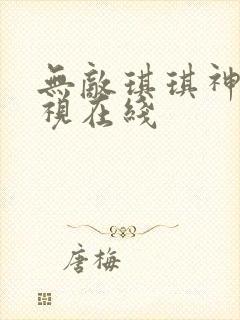 無敵琪琪神
視在綫
唐梅